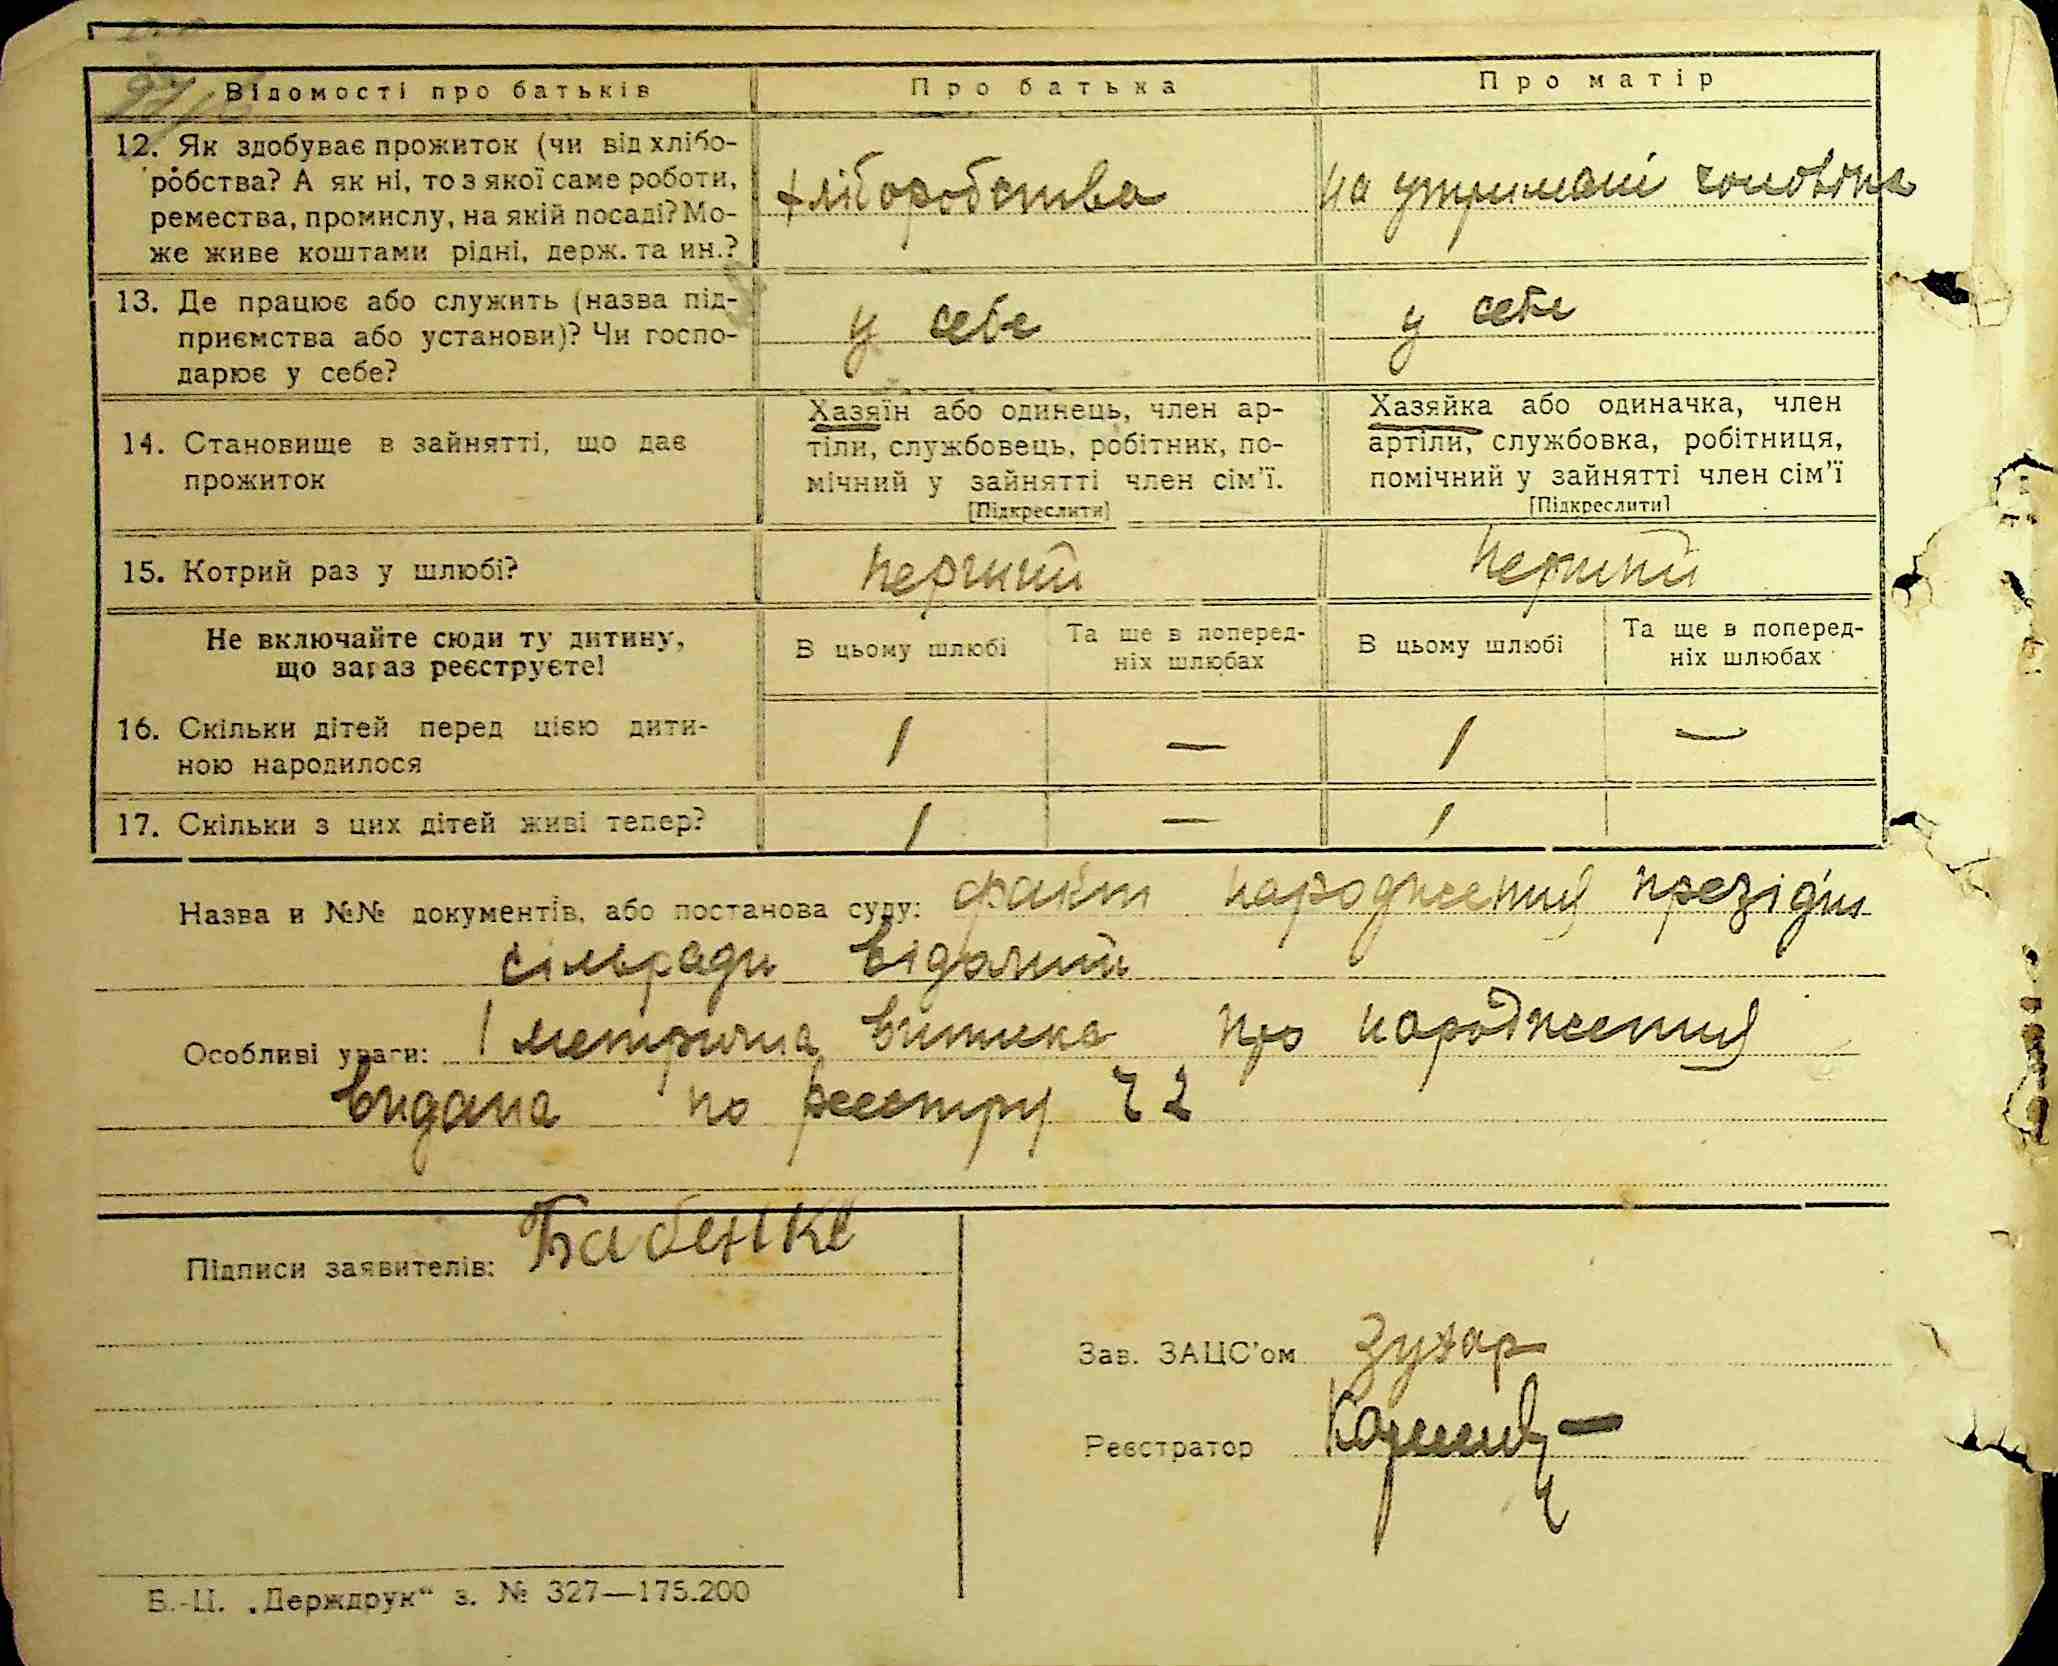 Відомості про батьків Про батька Про матір
12. Як здобуває прожиток (чи від хлібо-
робства? А як ні, то з якої саме роботи,
ремества, промислу, на якій посаді? Мо-
же живе коштами рідні, держ. та ин.?
хліборобства на утримані чоловіка
13. Де працює або служить (назва під-
приємства або установи)? Чи госпо-
дарює у себе?
у себе у себе
14. Становище в зайнятті, що дає
прожиток
Хазяїн або одинець, член ар-
тіли, службовець, робітник, по-
мічний у зайнятті член сім'ї.
[Підкреслити]
Хазяйка або одиначка, член
артіли, службовка, робітниця,
помічний у зайнятті член сім'ї
[Підкреслити]
15. Котрий раз у шлюбі? перший перший
Не включайте сюди ту дитину,
що зараз реєструєте!
В цьому шлюбі
Та ще в поперед-
ніх шлюбах
В цьому шлюбі
Та ще в поперед-
ніх шлюбах
16. Скільки дітей перед цією дити-
ною народилося
1 — 1 —
17. Скільки з цих дітей живі тепер? 1 — 1
Назва и №№ документів, або постанова суду: факт народження
сільради відомий
Особливі уваги: 1 метрична витика про народження
видана по реєстру 2
Підписи заявителів: Бабенко
Зав. ЗАЦС'ом Зухар
Реєстратор
Б.-Ц. „Держдрук“ з. № 327—175.200